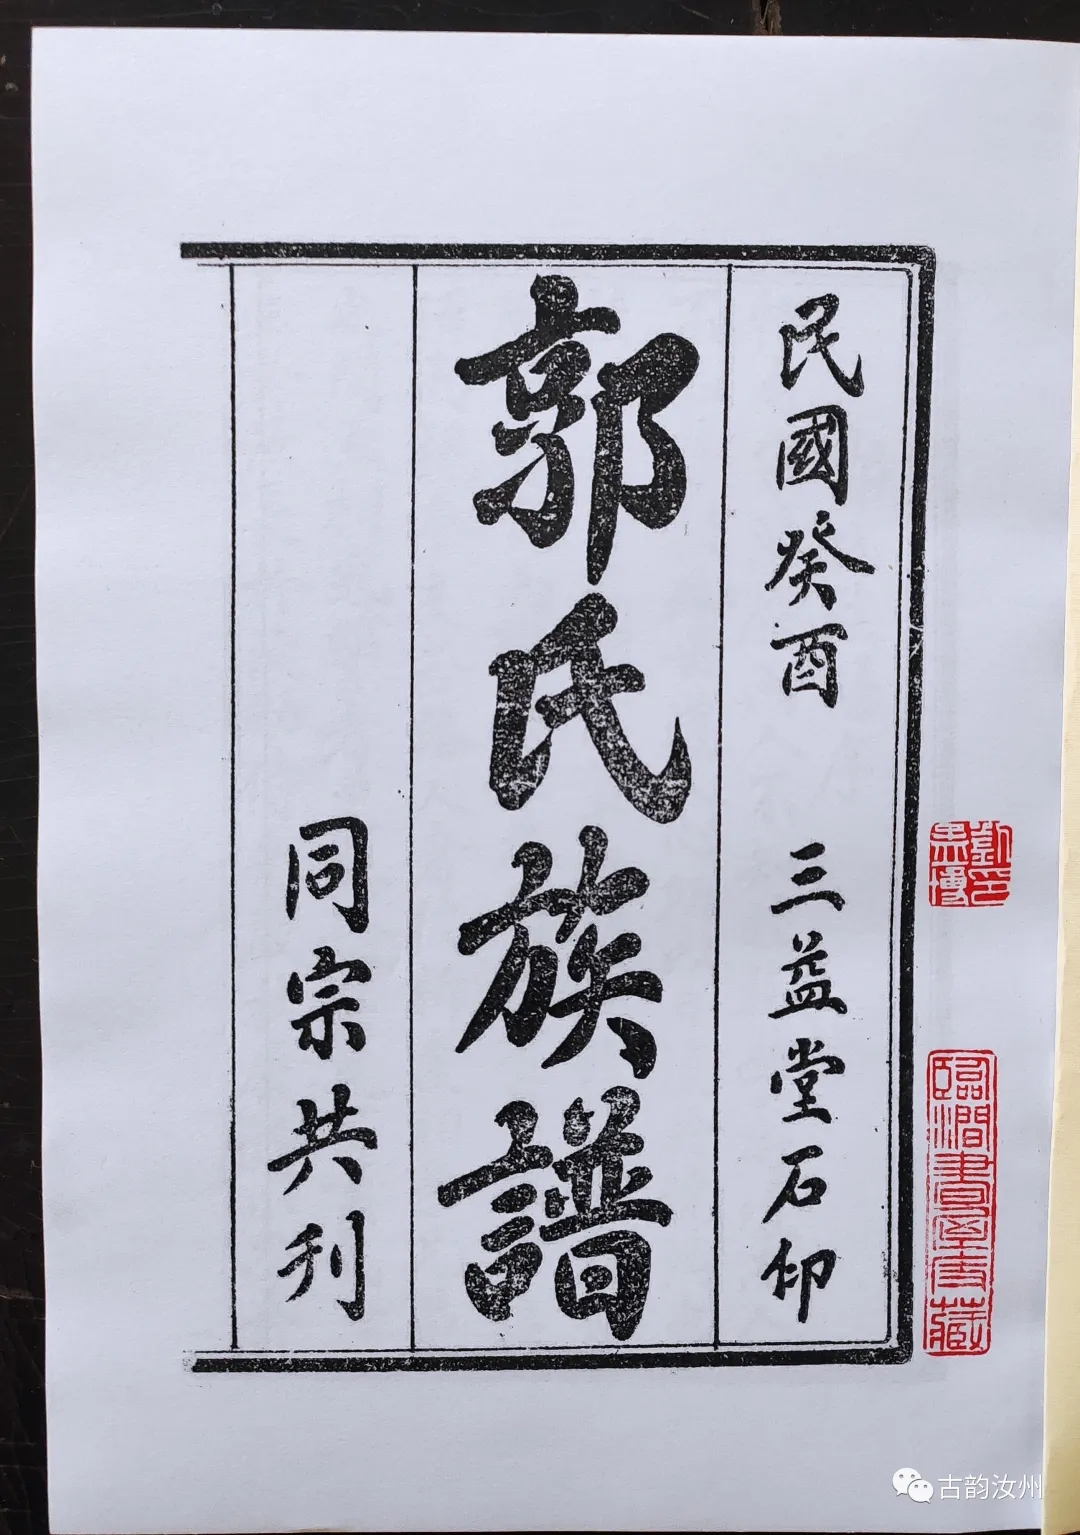 民國癸酉 三益堂石印
郭氏族譜
同宗共刊
臨澗書屋所藏
古韵汝州